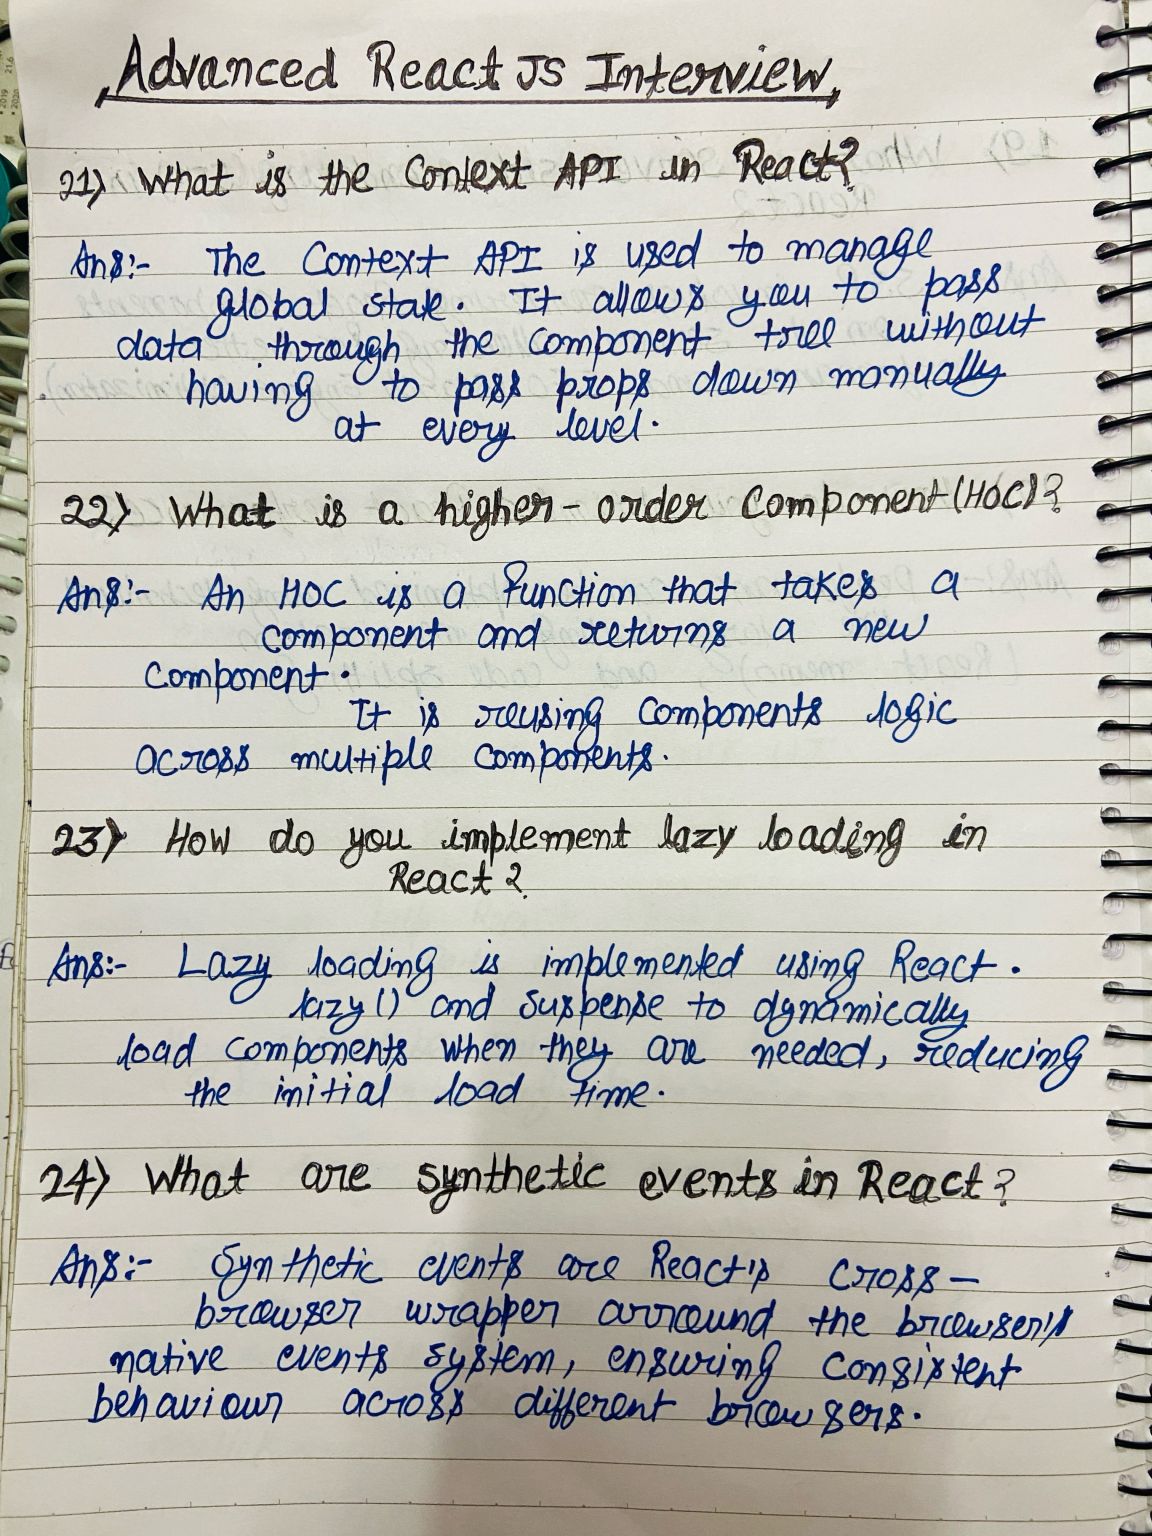 Advanced React JS Interview
21) What is the Context API in React?
Ans:- The Context API is used to manage
global state. It allows you to pass
data through the component tree without
having to pass props down manually
at every level.
22) What is a higher-order Component (HOC)?
Ans:- An HOC is a function that takes a
component and returns a new
Component.
It is reusing components logic
across multiple components.
23) How do you implement lazy loading in
React?
Ans:- Lazy loading is implemented using React.
lazy() and suspense to dynamically
load components when they are needed, reducing
the initial load time.
24) What are synthetic events in React?
Ans:- Synthetic events are React's cross-
browser wrapper arround the browser's
native events system, ensuring consistent
behaviour across different browsers.